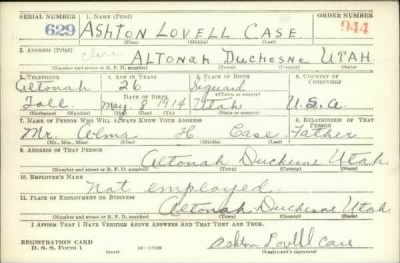 SERIAL NUMBER 1. NAME (Print) ORDER NUMBER
629 ASHTON LOVELL CASE 944
(First) (Middle) (Last)
2. ADDRESS (Print)
ALTONAH DUCHESNE UTAH.
(Number and street or R. F. D. number) (Town) (County) (State)
3. TELEPHONE 4. AGE IN YEARS 5. PLACE OF BIRTH 6. COUNTRY OF CITIZENSHIP
Altonah 26 Sigurd
(Town or county)
Toll DATE OF BIRTH May 8 1914 Utah U.S.A.
(Exchange) (Number) (Mo.) (Day) (Yr.) (State or country)
7. NAME OF PERSON WHO WILL ALWAYS KNOW YOUR ADDRESS 8. RELATIONSHIP OF THAT PERSON
Mr. Alma H. Case Father
(Mr., Mrs., Miss) (First) (Middle) (Last)
9. ADDRESS OF THAT PERSON
Altonah Duchesne Utah.
(Number and street or R. F. D. number) (Town) (County) (State)
10. EMPLOYER'S NAME
Not employed.
11. PLACE OF EMPLOYMENT OR BUSINESS
Altonah Duchesne Utah.
(Number and street or R. F. D. number) (Town) (County) (State)
I AFFIRM THAT I HAVE VERIFIED ABOVE ANSWERS AND THAT THEY ARE TRUE.
REGISTRATION CARD
D. S. S. Form 1 Ashton Lovell Case
(Registrant's signature)